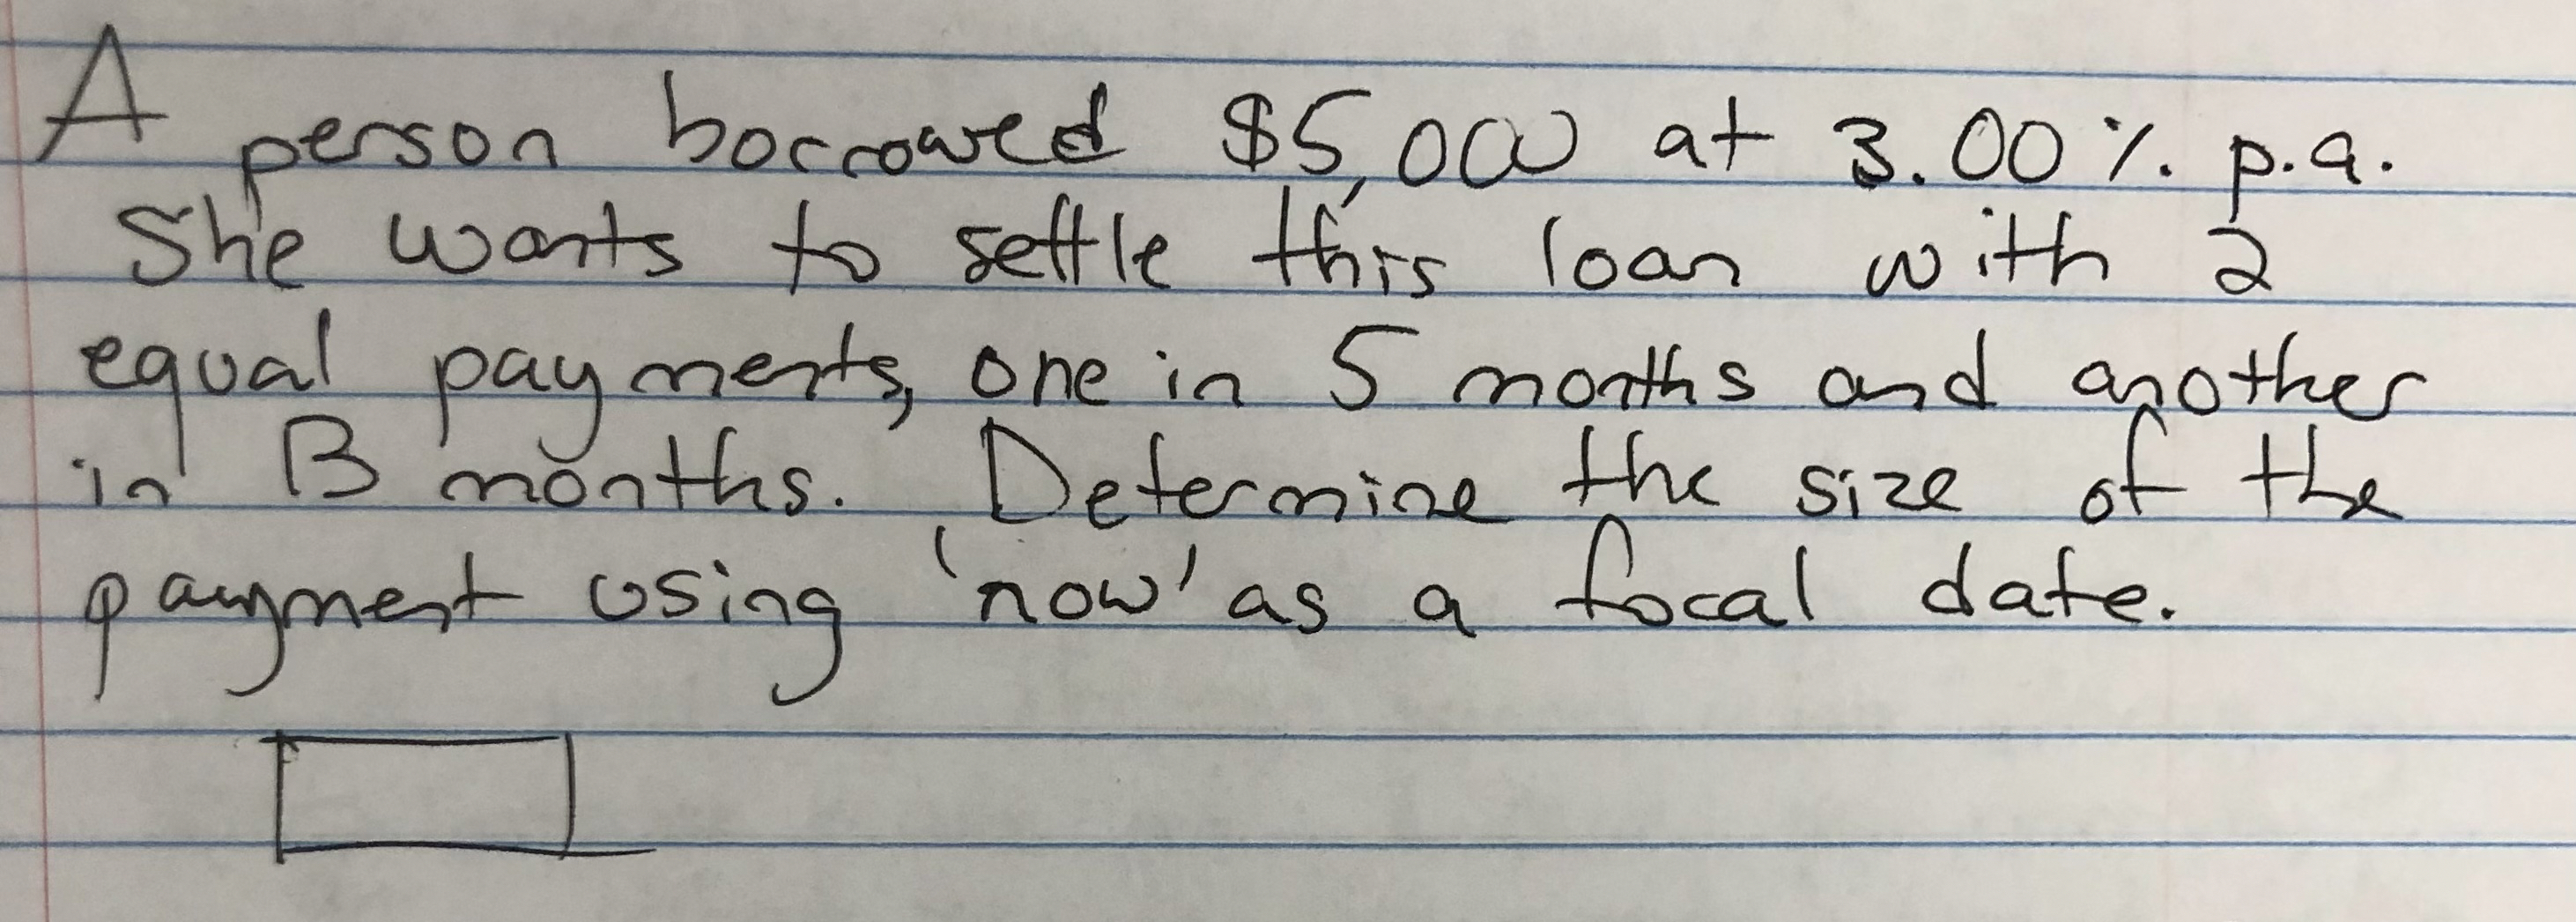 A person borrowed $5,000 at 3.00% p.a.
She wants to settle this loan with 2
equal payments, one in 5 months and another
in B months. Determine the size of the
payment using 'now' as a focal date.